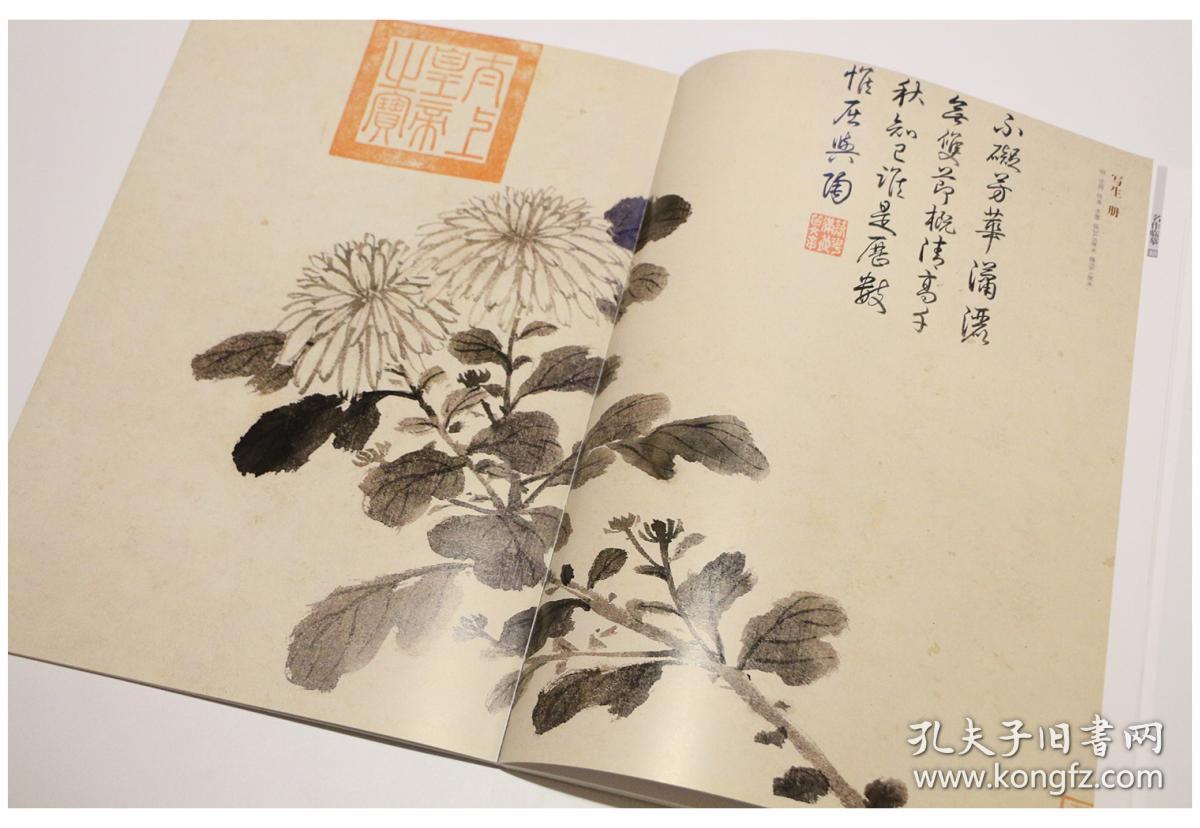 太上
皇帝
之寶
名作临摹
写生 册
不礙芳華瀟灑
無雙節概清高千
秋知己誰是歷數
惟屈與陶
孔夫子旧书网
www.kongfz.com